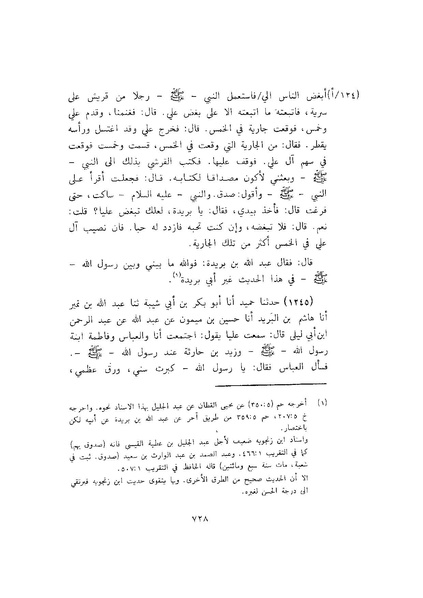 (١٢٤/أ)أبغض الناس الي/فاستعمل النبي - ﷺ - رجلا من قريش على
سرية، فاتبعته ما اتبعته الا على بغض علي. قال: فغنمنا، وقدم علي
وخمس، فوقعت جارية في الخمس. قال: فخرج علي وقد اغتسل ورأسه
يقطر. فقال: من الجارية التي وقعت في الخمس، قسمت وخمست فوقعت
في سهم آل علي. فوقف عليها. فكتب القرشي بذلك الى النبي -
ﷺ - وبعثني لأكون مصداقا لكتابه. قال: فجعلت أقرأ على
النبي - ﷺ - وأقول: صدق. والنبي - عليه السلام - ساكت، حتى
فرغت قال: فأخذ بيدي، فقال: يا بريدة، لعلك تبغض عليا؟ قلت:
نعم. قال: فلا تبغضه، وإن كنت تحبه فازدد له حبا. فان نصيب آل
علي في الخمس أكثر من تلك الجارية.
قال: فقال عبد الله بن بريدة: فوالله ما بيني وبين رسول الله -
ﷺ - في هذا الحديث غير أبي بريدة(١).
(١٢٤٥) حدثنا حميد أنا أبو بكر بن أبي شيبة ثنا عبد الله بن نمير
أنا هاشم بن البريد أنا حسين بن ميمون عن عبد الله عن عبد الرحمن
ابن أبي ليلى قال: سمعت عليا يقول: اجتمعت أنا والعباس وفاطمة ابنة
رسول الله - ﷺ - وزيد بن حارثة عند رسول الله - ﷺ -.
فسأل العباس فقال: يا رسول الله - كبرت سني، ورق عظمي،
(١) أخرجه حم (٣٥٠:٥) عن يحيى القطان عن عبد الجليل بهذا الاسناد نحوه. وأخرجه
خ ٢٠٧:٥، حم ٣٥٩:٥ من طريق آخر عن عبد الله بن بريدة عن أبيه لكن
باختصار.
واسناد ابن زنجويه ضعيف لأجل عبد الجليل بن عطية القيسي فانه (صدوق يهم)
كما في التقريب ٤٦٦:١. وعبد الصمد بن عبد الوارث بن سعيد (صدوق. ثبت في
شعبة، مات سنة سبع ومائتين) قاله الحافظ في التقريب ٥٠٧:١.
الا أن الحديث صحيح من الطرق الأخرى. وبها يتقوى حديث ابن زنجويه فيرتقي
الى درجة الحسن لغيره.
٧٢٨